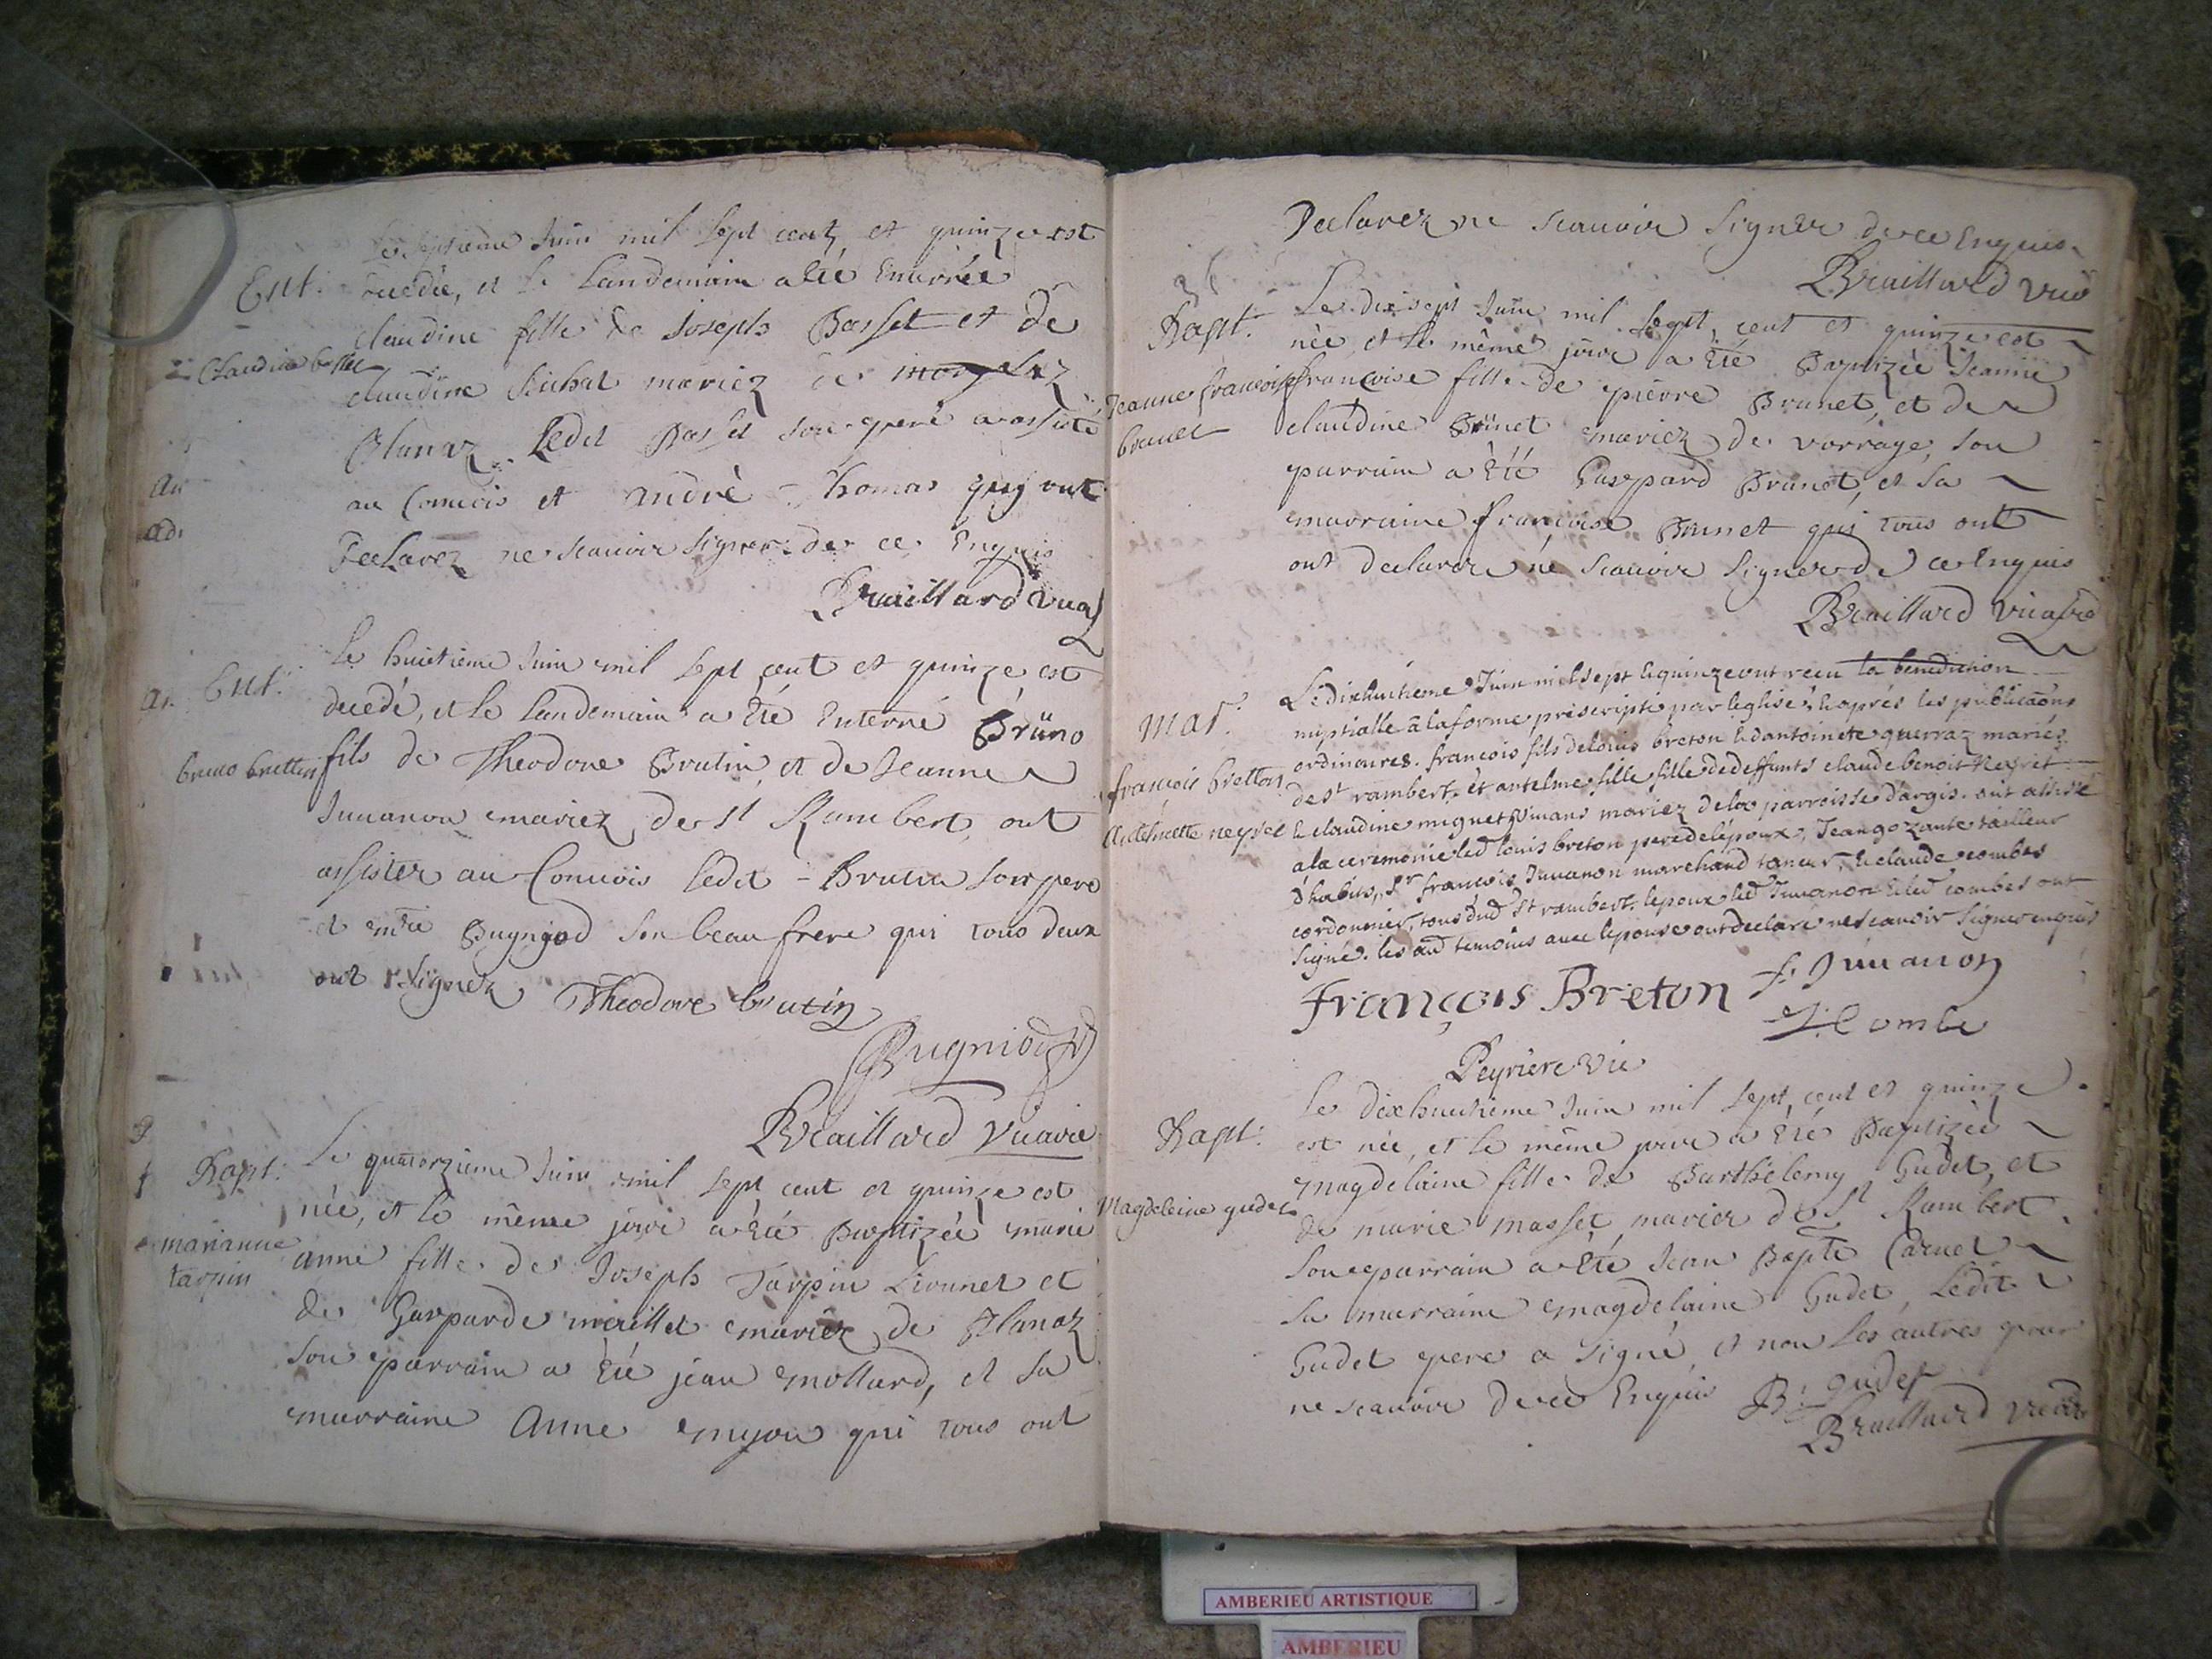 Le septieme Juin mil sept cent et quinze est
Ent:
decedée, et le Landemain a été Enterrée
claudine fille de Joseph Basset et de
Claudine basset
claudine Michat mariez de
Blanaz Ledit Basset son pere a assisté
au Convois et andrè Thomas quy ont
Declarez ne scauoir signer de ce Enquis
Braillard
Ent:
Le huitieme Juin mil sept cent et quinze est
decedé, et le landemain a été Enterré Brüno
bruno bruttin
fils de Theodore Brutin et de Jeanne
Juuanon mariez de St Rambert, ont
assister au Conuois ledit Brutin son pere
et Buyngod son beau frere qui tous deux
ont signez Theodore brutin
Bugniod
Braillard Vicaire
Bapt:
Le quatorzieme Juin mil sept cent et quinze est
née, et le même jour a été Baptizée marie
marianne
tarpin
anne fille de Joseph Tarpin Lionnet et
de Gasparde mariez de Blanaz
son parrain a été jean mollard, et sa
marraine Anne qui tous ont
Declarez ne scauoir signer de ce Enquis
Braillard
Bapt:
Le dix sept Juin mil sept cent et quinze est
née et le même jour a été Baptizée Jeanne
Jeanne francoise
brunet
francoise fille de pierre Brunet, et de
claudine Brunet mariez de vorrage, son
parrain a été Gaspard Brunet, et sa
marraine francoise Brunet qui tous ont
ont declarer ne scauoir signer de ce Enquis
Braillard Vicaire
mar.
Le dixhuitieme Juin mil sept & quinze ont receu la benediction
nuptialle a la forme prescripte par leglise, & aprés les publications
ordinaires. francois fils de louis breton & dantoinete guerraz mariés
francois bretton
de st rambert, et antelme fille de deffunts claude benoit Neyret
& claudine miguet viuans mariez dela parroisse dargis. ont assisté
ala ceremonie led louis breton pere de lépoux, Jean gozante tailleur
dhabits, Sr francois Juuanon marchand taneur, & claude combes
cordonnier, tous dud St rambert. lepoux led Juuanon & led combes ont
signé. les aud temoins auec lepouse ont declaré ne scauoir signer enquis
françois Breton
f. Juuanon
Combe
Peyriere Vic
Bapt:
Le dixhuitieme Juin mil sept cent et quinze
est née, et le même jour a été Baptizée
magdelaine fille de Barthelemy Gudet, et
Magdeleine gudet
de marie masset mariez de St Rambert
son parrain a été Jean Bapte Caruet
sa marraine magdelaine Gudet, Ledit
Gudet pere a signé, et non les autres pour
ne scauoir de ce Enquis B: gudet
Braillard
AMBERIEU ARTISTIQUE
AMBERIEU